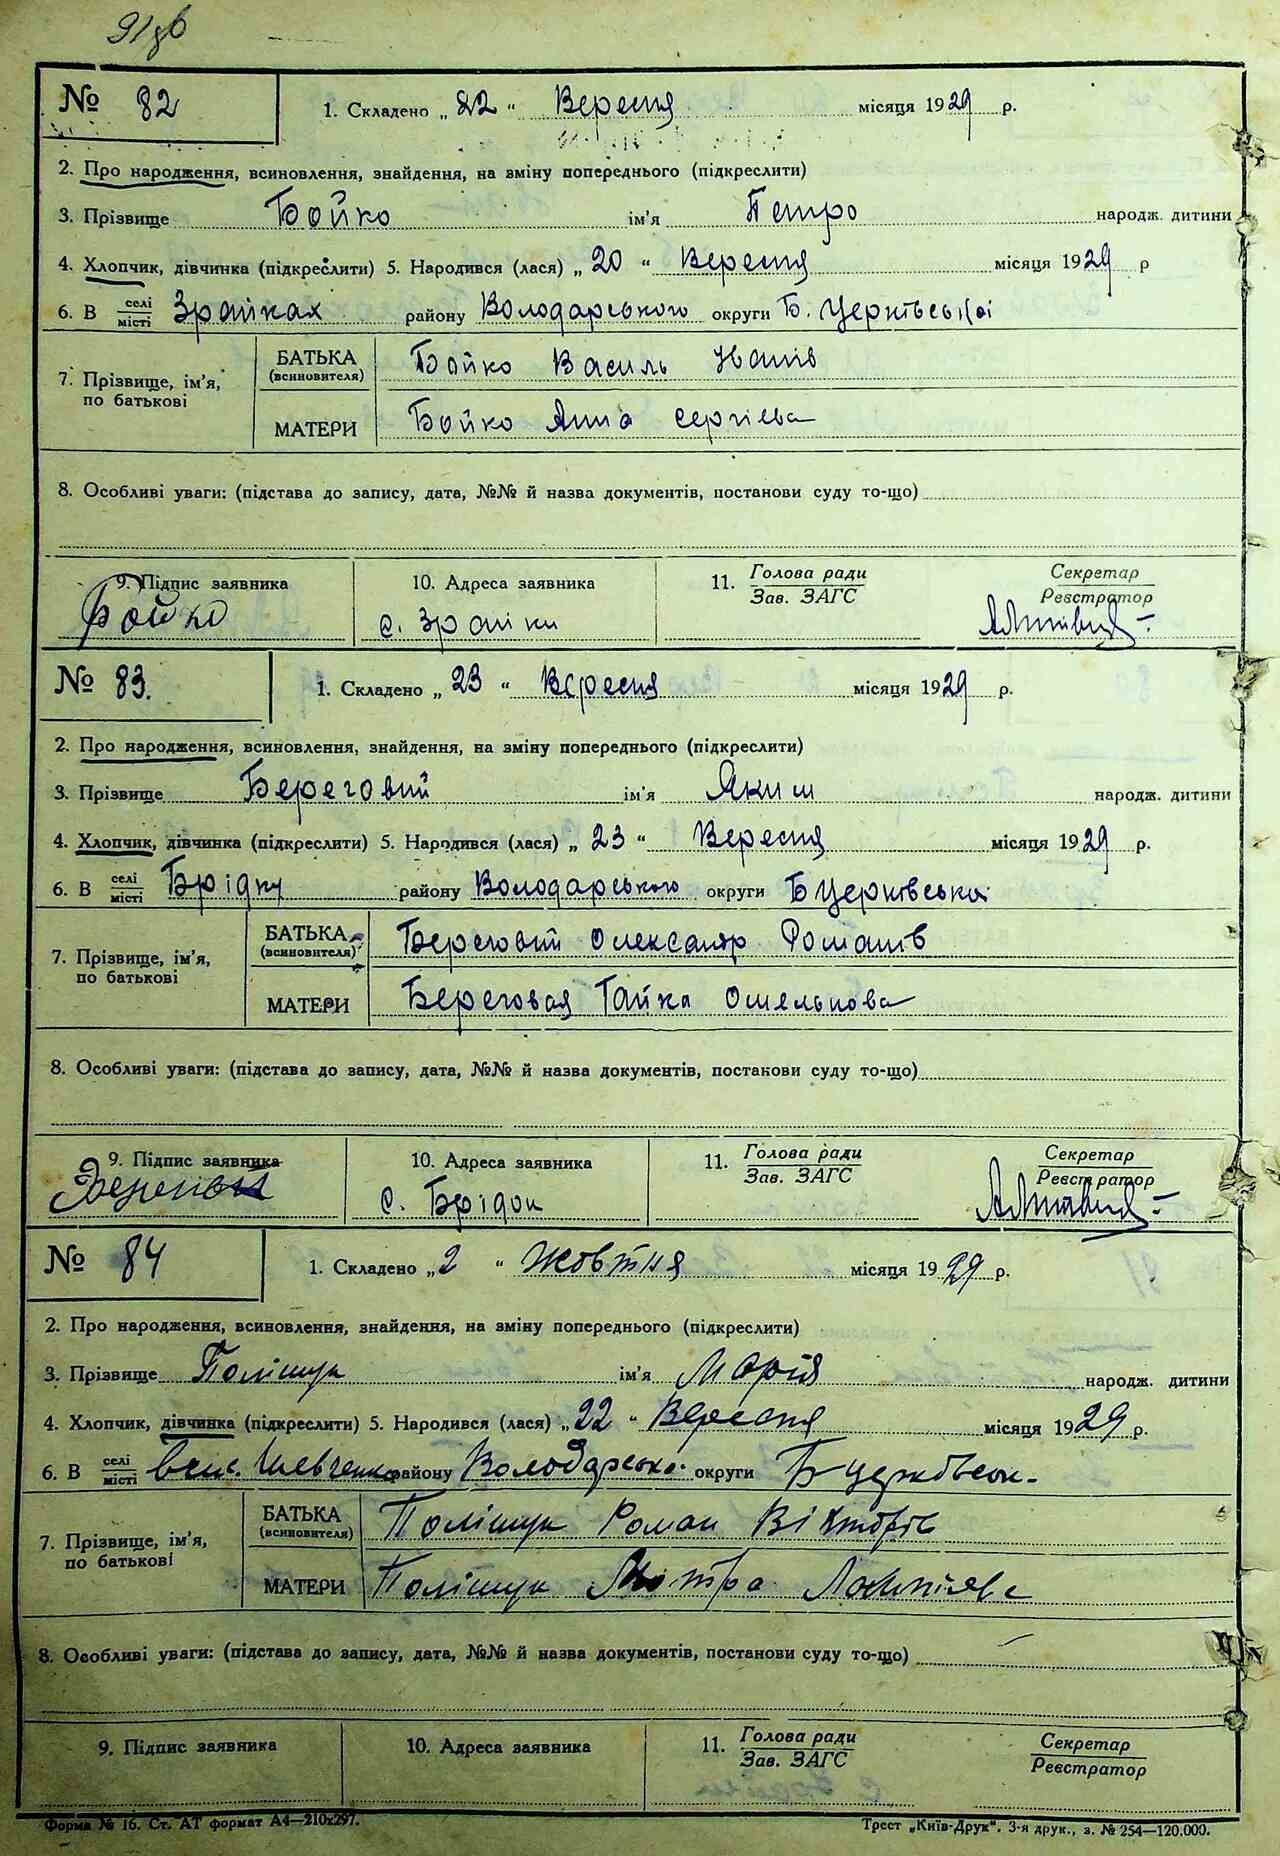 91зв
№ 82 1. Складено „ 22 “ Вересня місяця 1929 р.
2. Про народження, всиновлення, знайдення, на зміну попереднього (підкреслити)
3. Прізвище Бойко ім'я Петро народж. дитини
4. Хлопчик, дівчинка (підкреслити) 5. Народився (лася) „ 20 “ Вересня місяця 1929 р
6. В селі/місті Зрайках району Володарського округи Б. Церківській
7. Прізвище, ім'я, по батькові БАТЬКА (всиновителя) Бойко Василь Іванів
МАТЕРИ Бойко Анна Сергіева
8. Особливі уваги: (підстава до запису, дата, №№ й назва документів, постанови суду то-що)
9. Підпис заявника 10. Адреса заявника 11. Голова ради/Зав. ЗАГС Секретар/Реєстратор
Бойко с. Зрайки
№ 83. 1. Складено „ 23 “ Вересня місяця 1929 р.
2. Про народження, всиновлення, знайдення, на зміну попереднього (підкреслити)
3. Прізвище Береговий ім'я Яким народж. дитини
4. Хлопчик, дівчинка (підкреслити) 5. Народився (лася) „ 23 “ Вересня місяця 1929 р.
6. В селі/місті Брідку району Володарського округи Б Церківська
7. Прізвище, ім'я, по батькові БАТЬКА (всиновителя) Береговий Олександр Романів
МАТЕРИ Береговая Гапка Омельнова
8. Особливі уваги: (підстава до запису, дата, №№ й назва документів, постанови суду то-що)
9. Підпис заявника 10. Адреса заявника 11. Голова ради/Зав. ЗАГС Секретар/Реєстратор
с. Брідок
№ 84 1. Складено „ 2 “ Жовтня місяця 1929 р.
2. Про народження, всиновлення, знайдення, на зміну попереднього (підкреслити)
3. Прізвище Поліщук ім'я Марія народж. дитини
4. Хлопчик, дівчинка (підкреслити) 5. Народився (лася) „ 22 “ Вересня місяця 1929 р.
6. В селі/місті Шевченка району Володарська. округи Б Церківськ.
7. Прізвище, ім'я, по батькові БАТЬКА (всиновителя) Поліщук Роман Вікторів
МАТЕРИ Поліщук Мотра
8. Особливі уваги: (підстава до запису, дата, №№ й назва документів, постанови суду то-що)
9. Підпис заявника 10. Адреса заявника 11. Голова ради/Зав. ЗАГС Секретар/Реєстратор
Форма № 16. Ст. АТ формат А4—210х297. Трест „Київ-Друк“. 3-я друк., з. № 254—120.000.